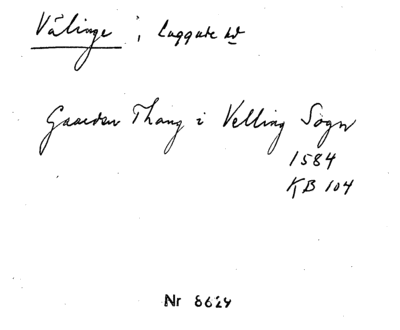 Välinge i Luggude hd
Gaarden Thang i Velling Sogn
1584
KB 104
Nr 8624